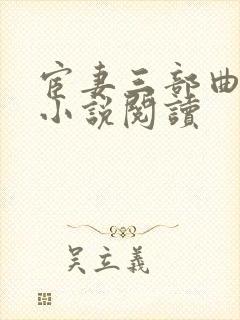 宦妻三部曲
小說閱讀
吴立義